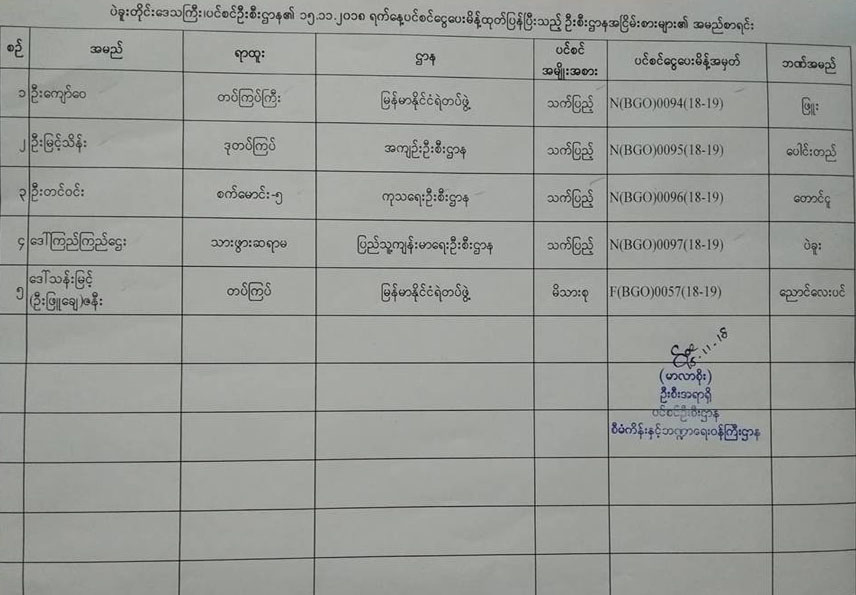 ပဲခူးတိုင်းဒေသကြီး၊ပင်စင်ဦးစီးဌာန၏ ၁၅.၁၁.၂၀၁၈ ရက်နေ့ပင်စင်ငွေပေးမိန့်ထုတ်ပြန်ပြီးသည့် ဦးစီးဌာနအငြိမ်းစားများ၏ အမည်စာရင်း
စဉ် အမည် ရာထူး ဌာန ပင်စင် အမျိုးအစား ပင်စင်ငွေပေးမိန့်အမှတ် ဘဏ်အမည်
၁ ဦးကျော်ဝေ တပ်ကြပ်ကြီး မြန်မာနိုင်ငံရဲတပ်ဖွဲ့ သက်ပြည့် N(BGO)0094(18-19) ဖြူး
၂ ဦးမြင့်သိန်း ဒုတပ်ကြပ် အကျဉ်းဦးစီးဌာန သက်ပြည့် N(BGO)0095(18-19) ပေါင်းတည်
၃ ဦးတင်ဝင်း စက်မောင်း-၅ ကုသရေးဦးစီးဌာန သက်ပြည့် N(BGO)0096(18-19) တောင်ငူ
၄ ဒေါ်ကြည်ကြည်ဌေး သားဖွားဆရာမ ပြည်သူ့ကျန်းမာရေးဦးစီးဌာန သက်ပြည့် N(BGO)0097(18-19) ပဲခူး
၅ ဒေါ်သန်းမြင့် (ဦးဖြူချေ)ဇနီး တပ်ကြပ် မြန်မာနိုင်ငံရဲတပ်ဖွဲ့ မိသားစု F(BGO)0057(18-19) ညောင်လေးပင်
(မာလာစိုး)
ဦးစီးအရာရှိ
ပင်စင်ဦးစီးဌာန
စီမံကိန်းနှင့်ဘဏ္ဍာရေးဝန်ကြီးဌာန